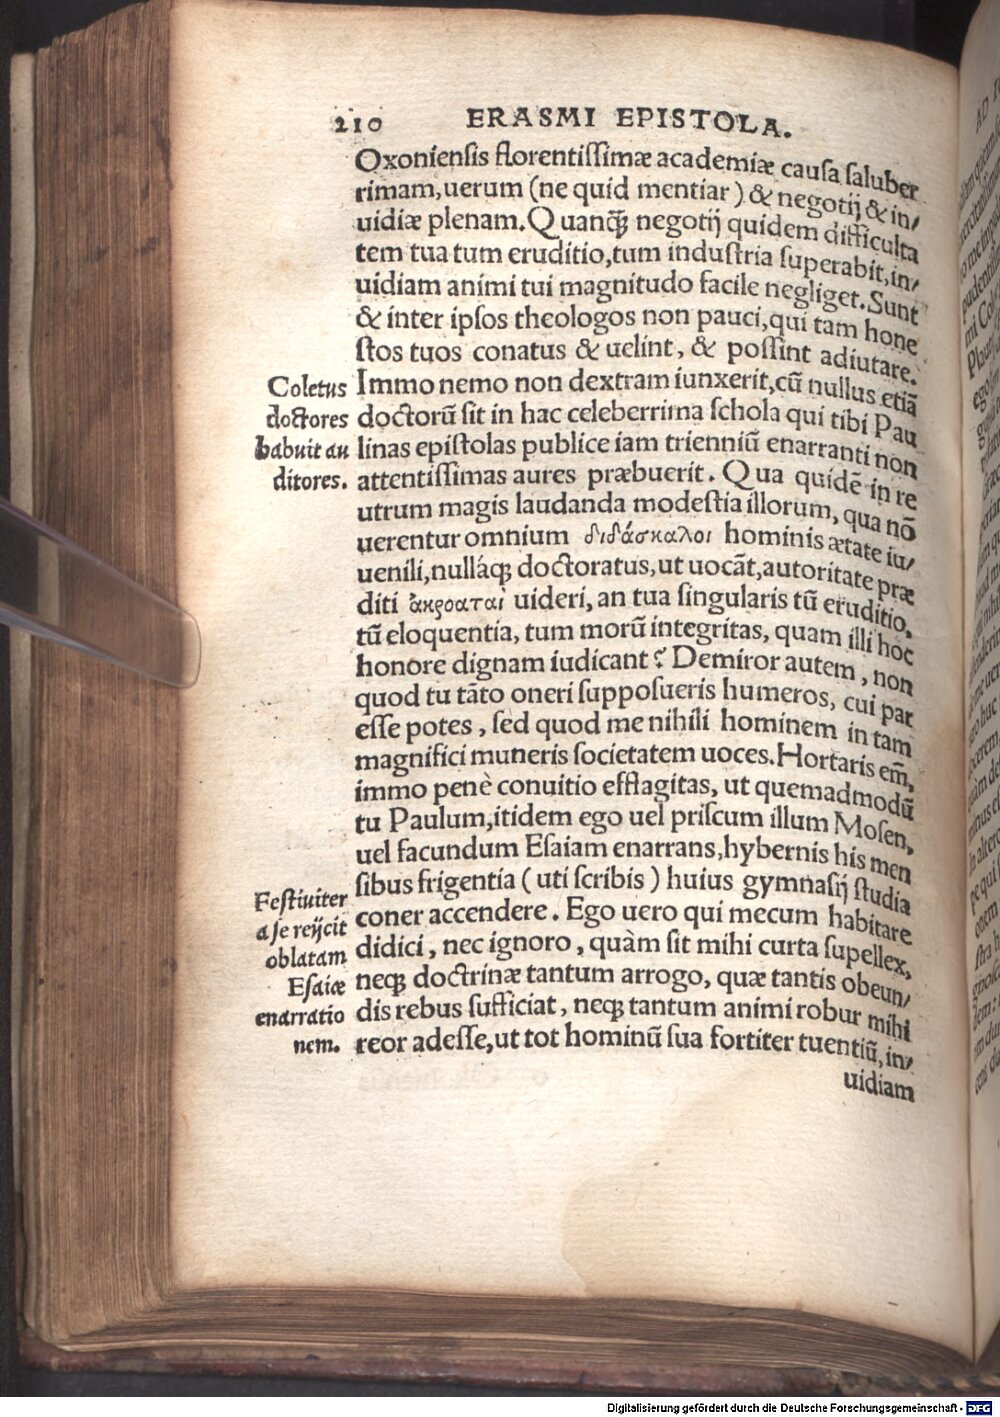 210 ERASMI EPISTOLA.
Oxoniensis florentissimæ academiæ causa saluber
rimam, uerum (ne quid mentiar) & negotij & in/
uidiæ plenam. Quanꝗ̃ negotij quidem difficulta
tem tua tum eruditio, tum industria superabit, in/
uidiam animi tui magnitudo facile negliget. Sunt
& inter ipsos theologos non pauci, qui tam hone
stos tuos conatus & uelint, & possint adiutare.
Immo nemo non dextram iunxerit, cũ nullus etiã
doctorũ sit in hac celeberrima schola qui tibi Pau
linas epistolas publice iam trienniũ enarranti non
attentissimas aures præbuerit. Qua quidẽ in re
utrum magis laudanda modestia illorum, qua nõ
uerentur omnium διδάσκαλοι hominis ætate iu/
uenili, nulláqꝫ doctoratus, ut uocãt, autoritate præ
diti ἀκροαταὶ uideri, an tua singularis tũ eruditio,
tũ eloquentia, tum morũ integritas, quam illi hoc
honore dignam iudicant? Demiror autem, non
quod tu tãto oneri supposueris humeros, cui par
esse potes, sed quod me nihili hominem in tam
magnifici muneris societatem uoces. Hortaris em̃,
immo penè conuitio efflagitas, ut quemadmodũ
tu Paulum, itidem ego uel priscum illum Mosen,
uel facundum Esaiam enarrans, hybernis his men
sibus frigentia (uti scribis) huius gymnasij studia
coner accendere. Ego uero qui mecum habitare
didici, nec ignoro, quàm sit mihi curta supellex,
neqꝫ doctrinæ tantum arrogo, quæ tantis obeun/
dis rebus sufficiat, neqꝫ tantum animi robur mihi
reor adesse, ut tot hominũ sua fortiter tuentiũ, in/
uidiam
Coletus
doctores
habuit au
ditores.
Festiuiter
a se reijcit
oblatam
Esaiæ
enarratio
nem.
Digitalisierung gefördert durch die Deutsche Forschungsgemeinschaft - DFG